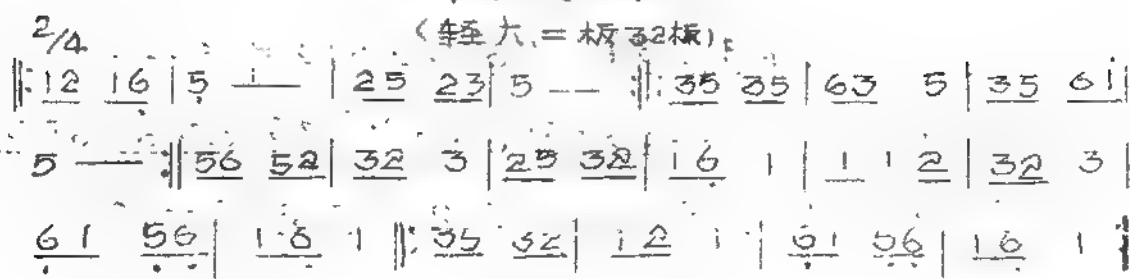 2/4 (轻六.二板32板)
‖: 12 16̣ | 5̣ — | 25 23 | 5 — :‖: 35 35 | 63 5 | 35 6i |
5 — :‖ 56 52 | 32 3 | 25 32 | 16̣ 1 | 1 1 2 | 32 3 |
6̣1 5̣6̣ | 1·6̣ 1 ‖: 35 32 | 12 1 | 6̣1 5̣6̣ | 16̣ 1 :‖